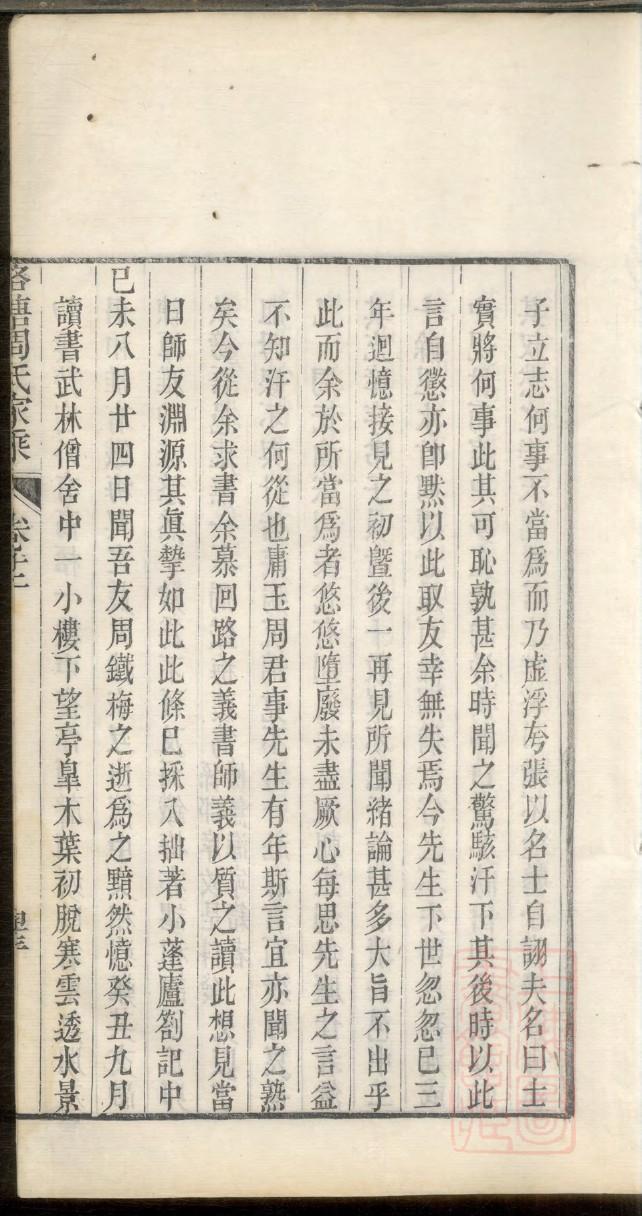 子立志何事不當爲而乃虛浮夸張以名士自詡夫名曰士
實將何事此其可恥孰甚余時聞之驚駭汗下其後時以此
言自懲亦卽默以此取友幸無失焉今先生下世忽忽已三
年迴憶接見之初曁後一再見所聞緒論甚多大旨不出乎
此而余於所當爲者悠悠墮廢未盡厥心每思先生之言益
不知汗之何從也庸玉周君事先生有年斯言宜亦聞之熟
矣今從余求書余慕回路之義書師義以質之讀此想見當
日師友淵源其眞摯如此此條已採入拙著小蓬廬劄記中
已未八月廿四日聞吾友周鐵梅之逝爲之黯然憶癸丑九月
讀書武林僧舍中一小樓下望亭臯木葉初脫寒雲透水景
洛塘周氏家乘